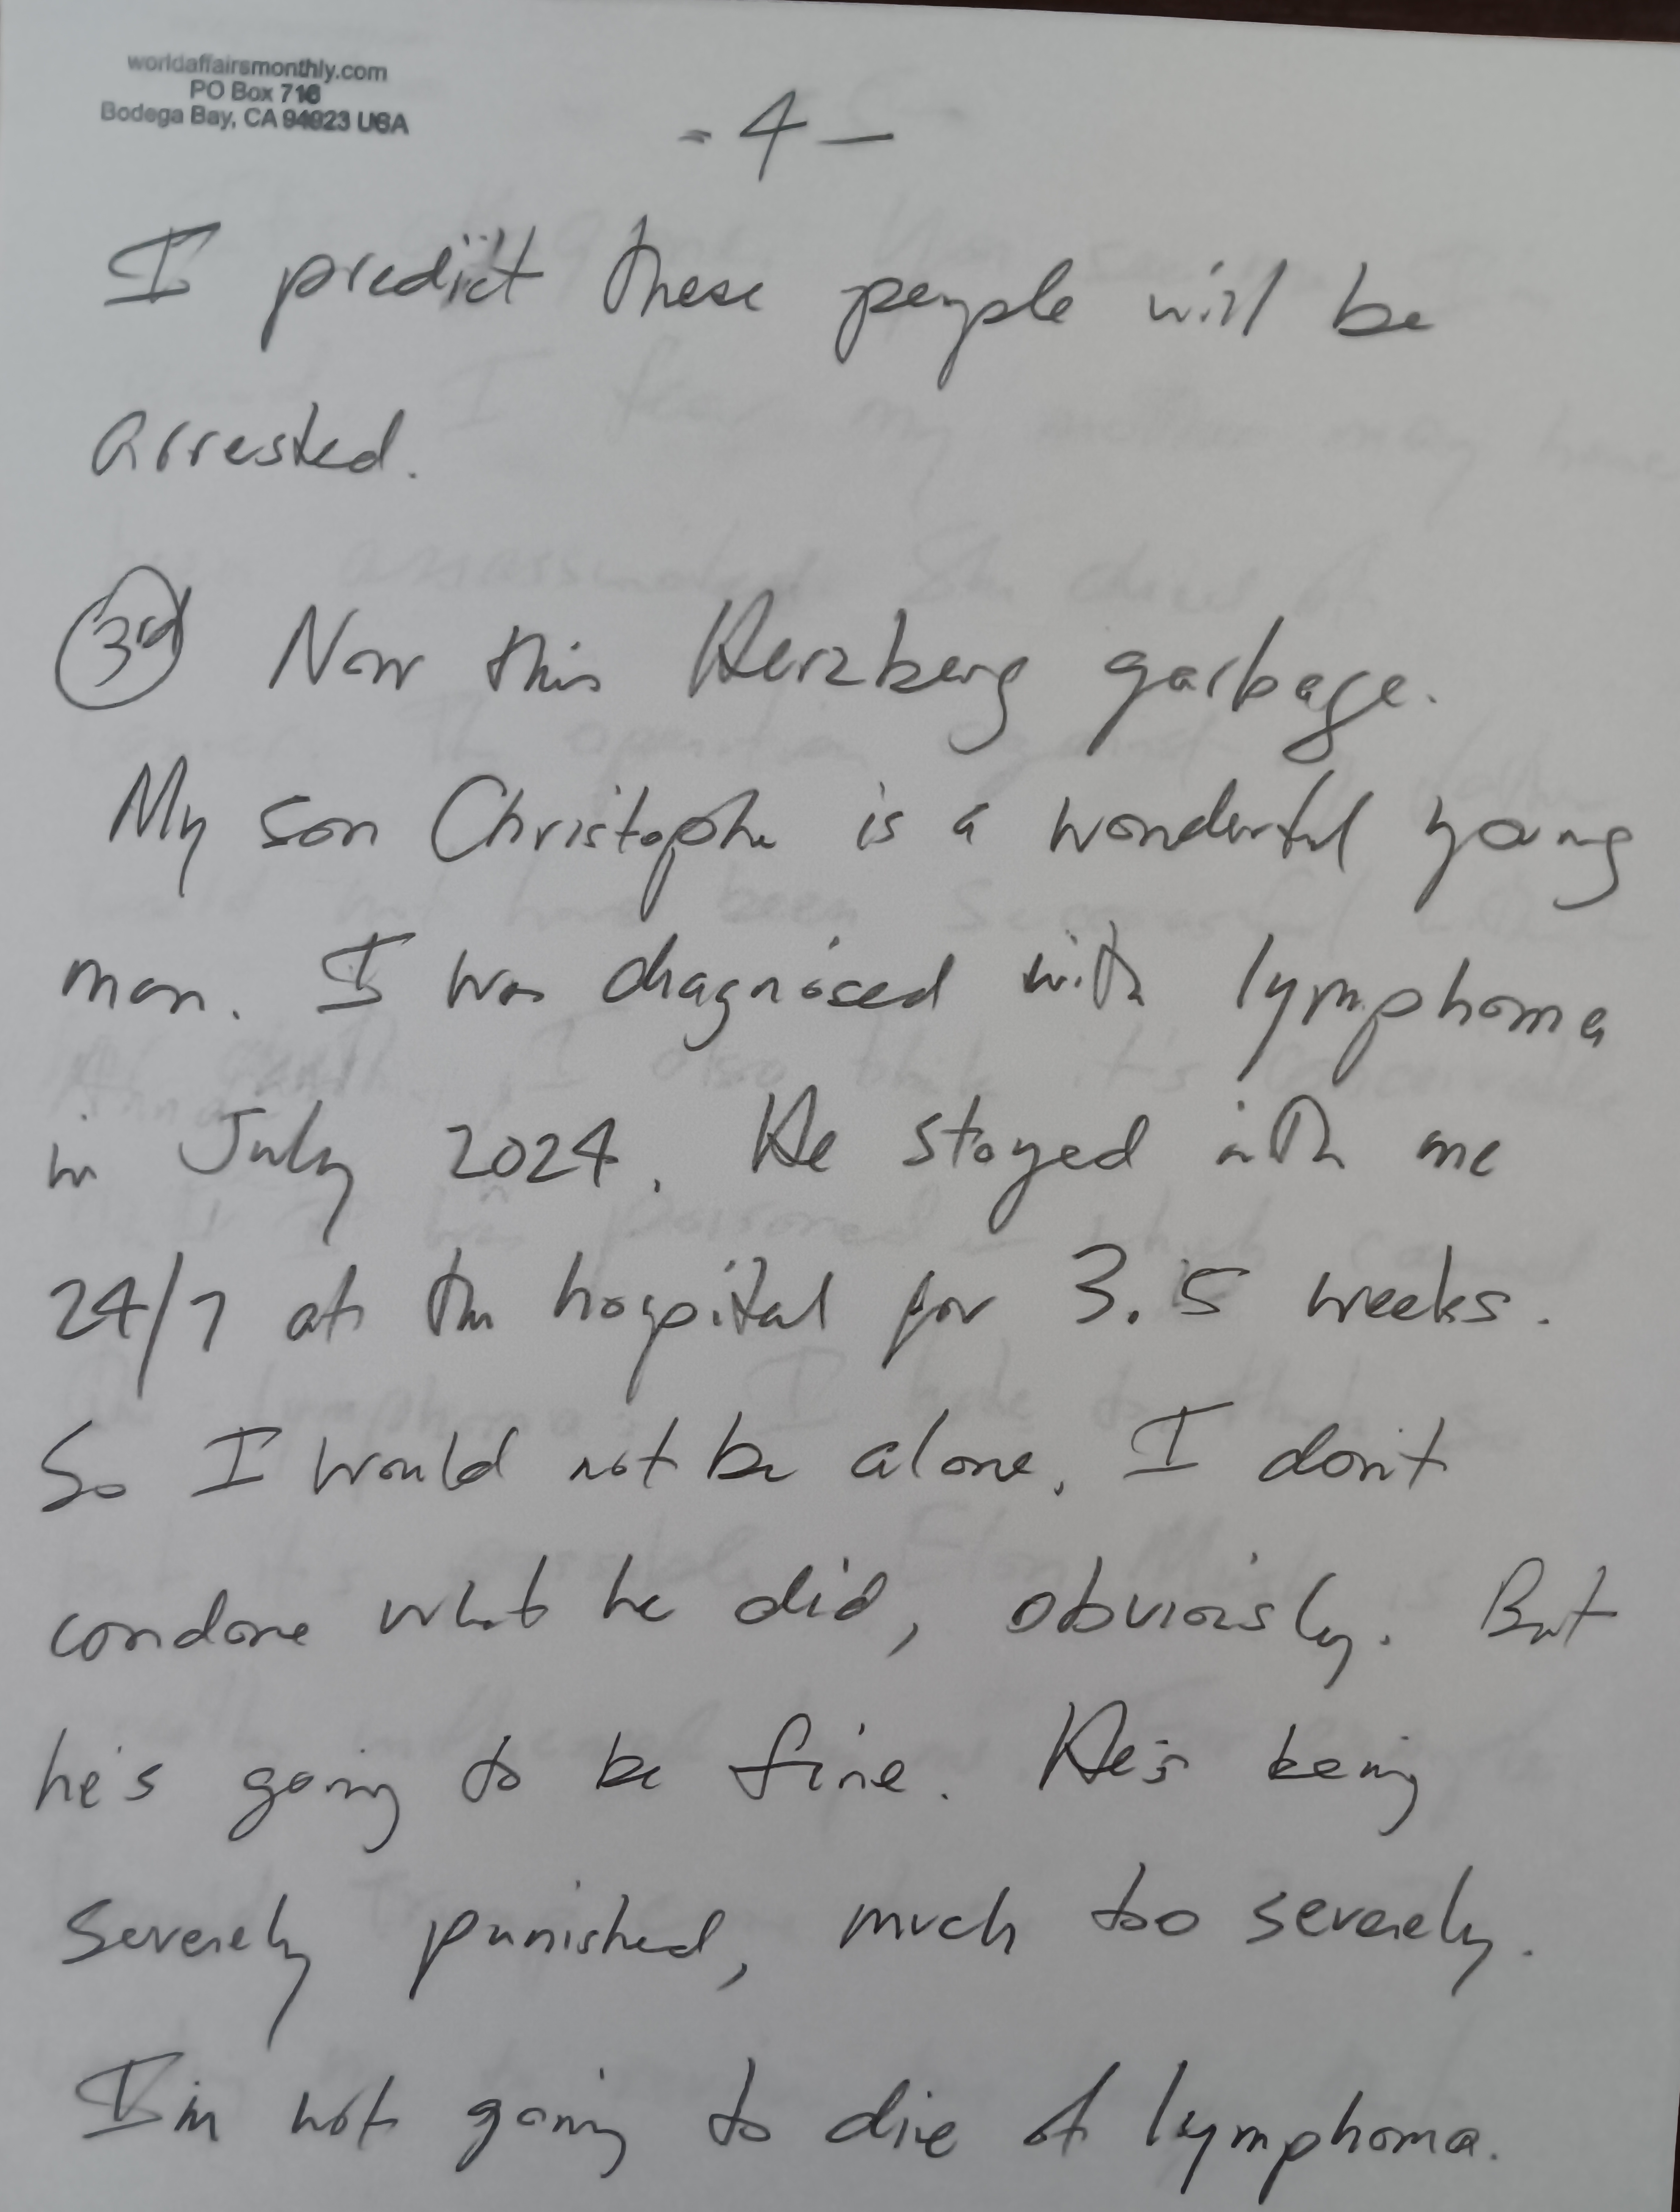 worldaffairsmonthly.com
PO Box 716
Bodega Bay, CA 94923 USA
- 4 -
I predict these people will be
arrested.
3rd Now this Herzberg garbage.
My son Christophe is a wonderful young
man. I was diagnosed with lymphoma
in July 2024. He stayed with me
24/7 at the hospital for 3.5 weeks.
So I would not be alone. I don't
condone what he did, obviously. But
he's going to be fine. He's being
severely punished, much too severely.
I'm not going to die of lymphoma.